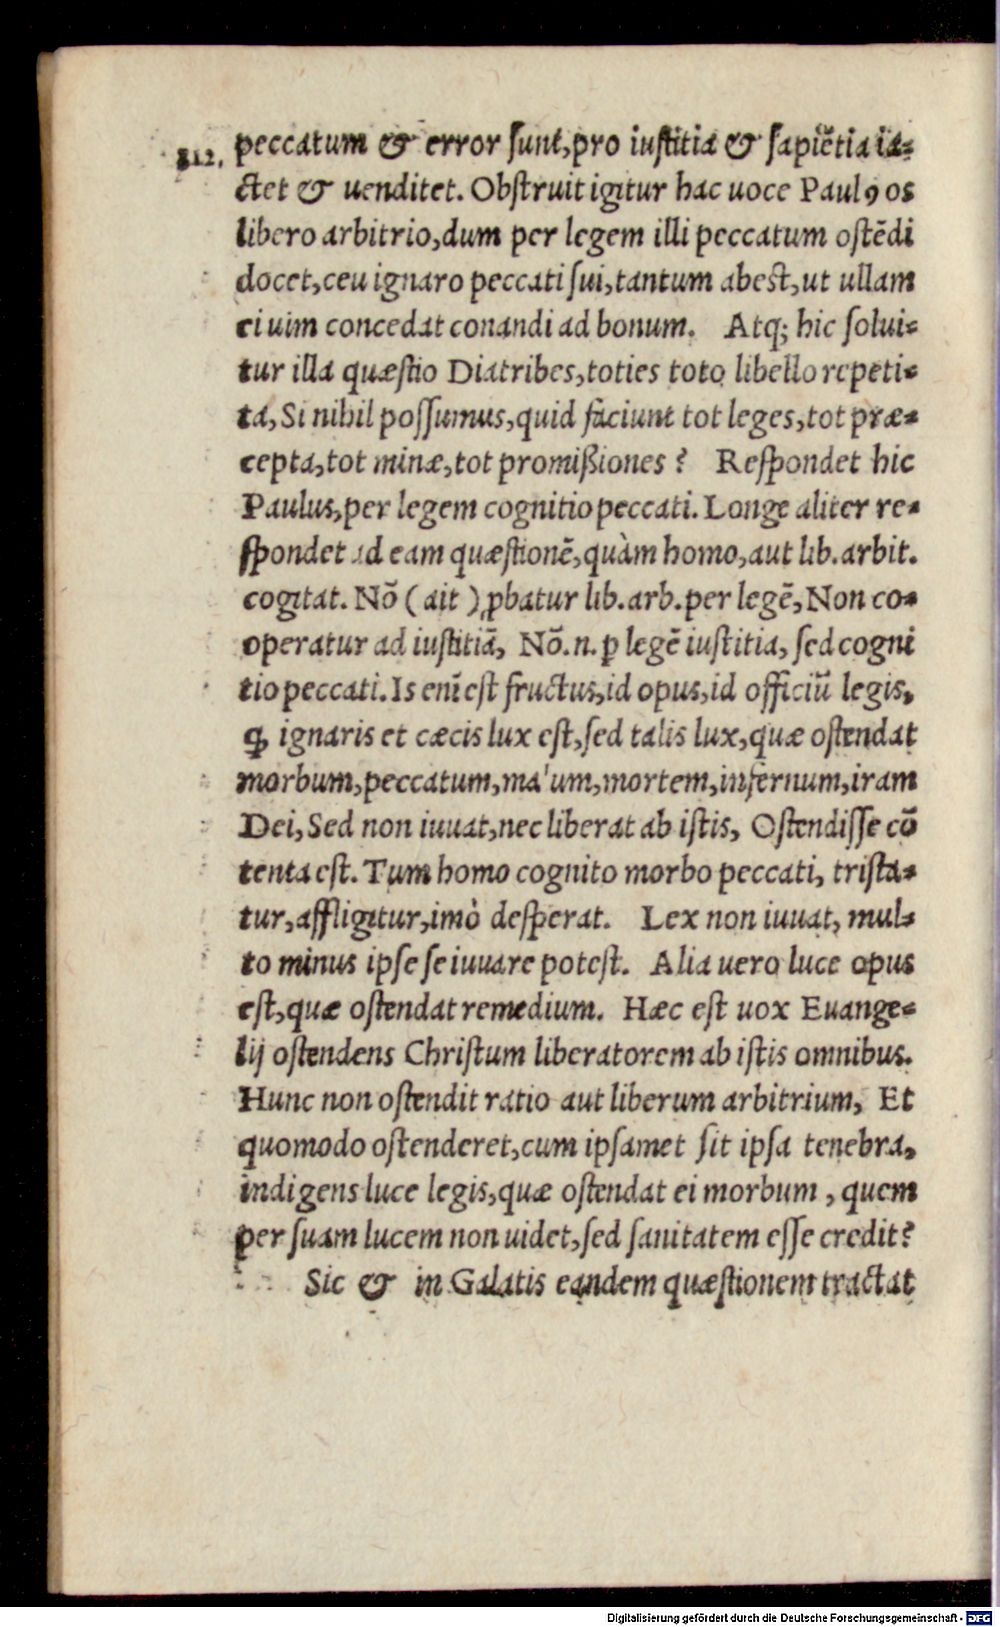 peccatum & error sunt, pro iustitia & sapiẽtia ia-
ctet & uenditet. Obstruit igitur hac uoce Paulꝰ os
libero arbitrio, dum per legem illi peccatum ostẽdi
docet, ceu ignaro peccati sui, tantum abest, ut ullam
ei uim concedat conandi ad bonum. Atq; hic solui-
tur illa quæstio Diatribes, toties toto libello repeti-
ta, Si nihil possumus, quid faciunt tot leges, tot præ-
cepta, tot minæ, tot promißiones? Respondet hic
Paulus, per legem cognitio peccati. Longe aliter re-
spondet ad eam quæstionẽ, quàm homo, aut lib. arbit.
cogitat. Nõ (ait) ꝓbatur lib. arb. per legẽ, Non co-
operatur ad iustitiã, Nõ. n. ꝑ legẽ iustitia, sed cogni
tio peccati. Is enĩ est fructus, id opus, id officiũ legis,
ꝙ ignaris et cæcis lux est, sed talis lux, quæ ostendat
morbum, peccatum, malum, mortem, infernum, iram
Dei, Sed non iuuat, nec liberat ab istis, Ostendisse cõ
tenta est. Tum homo cognito morbo peccati, trista-
tur, affligitur, imò desperat. Lex non iuuat, mul-
to minus ipse se iuuare potest. Alia uero luce opus
est, quæ ostendat remedium. Hæc est uox Euange-
lij ostendens Christum liberatorem ab istis omnibus.
Hunc non ostendit ratio aut liberum arbitrium, Et
quomodo ostenderet, cum ipsamet sit ipsa tenebra,
indigens luce legis, quæ ostendat ei morbum, quem
per suam lucem non uidet, sed sanitatem esse credit?
Sic & in Galatis eandem quæstionem tractat
Digitalisierung gefördert durch die Deutsche Forschungsgemeinschaft - DFG